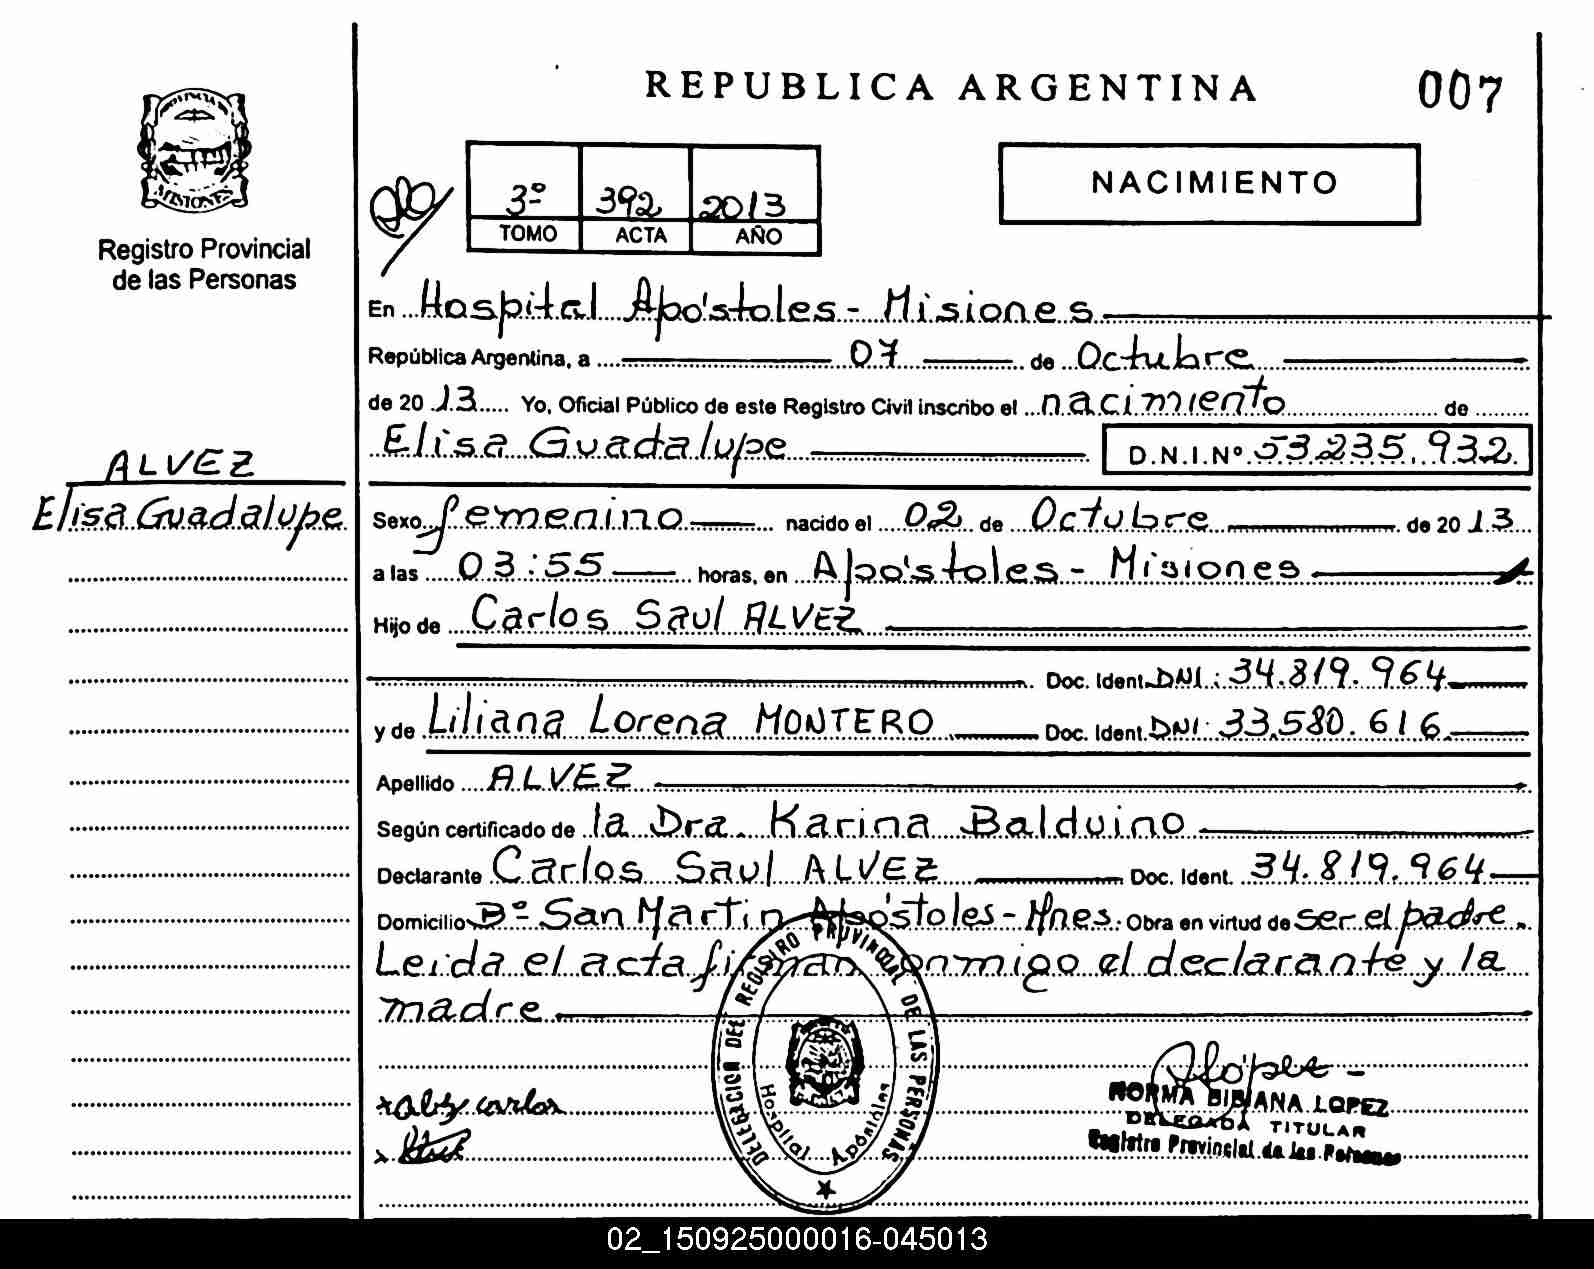 REPUBLICA ARGENTINA
007
PROVINCIA DE
MISIONES
Registro Provincial
de las Personas
3º 392 2013
TOMO ACTA AÑO
NACIMIENTO
En Hospital Apóstoles - Misiones
República Argentina, a 07 de Octubre
de 20 13 Yo, Oficial Público de este Registro Civil inscribo el nacimiento de
Elisa Guadalupe D.N.I.Nº 53.235.932
ALVEZ
Elisa Guadalupe
Sexo femenino nacido el 02 de Octubre de 20 13
a las 03:55 horas, en Apóstoles - Misiones
Hijo de Carlos Saul ALVEZ
Doc. Ident. DNI: 34.819.964
y de Liliana Lorena MONTERO Doc. Ident. DNI: 33.580.616
Apellido ALVEZ
Según certificado de la Dra. Karina Balduino
Declarante Carlos Saul ALVEZ Doc. Ident. 34.819.964
Domicilio Bº San Martin Apóstoles - Mnes. Obra en virtud de ser el padre.
Leída el acta firman conmigo el declarante y la
madre
DELEGACION DEL REGISTRO PROVINCIAL DE LAS PERSONAS
Hospital Apóstoles
x Alvez carlos
x
Lópee -
NORMA BIBIANA LOPEZ
DELEGADA TITULAR
Registro Provincial de las Personas
02_150925000016-045013